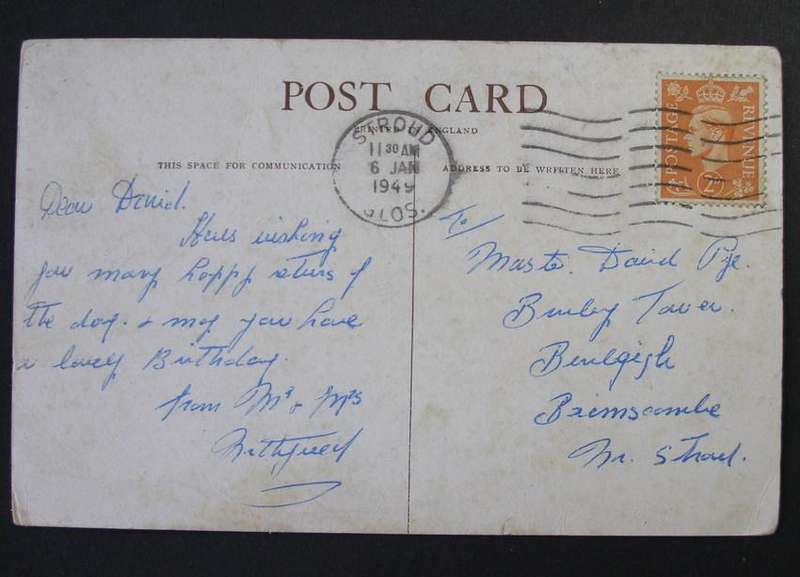 POST CARD
PRINTED IN ENGLAND
THIS SPACE FOR COMMUNICATION
ADDRESS TO BE WRITTEN HERE
STROUD
11 30 AM
6 JAN
1949
GLOS.
POSTAGE REVENUE
2D
Dear David.
Heres wishing
you many happy returns of
the day. & may you have
a lovely Birthday.
from Mr & Mrs
To/
Master. David Pye.
Tower.
Brimscombe
Nr. Stroud.